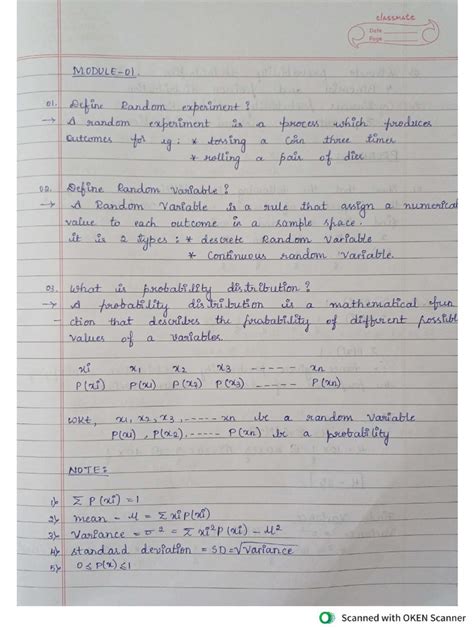 classmate
Date
Page
MODULE-01.
01. Define Random experiment?
→ A random experiment is a process which produces
outcomes for eg: * tossing a coin three times
* rolling a pair of dies
02. Define Random Variable?
→ A Random Variable is a rule that assign a numerical
value to each outcome in a sample space.
it is 2 types: * descrete Random Variable
* Continuous random Variable.
03. What is probability distribution?
→ A probability distribution is a mathematical fun
-ction that describes the probability of different possible
values of a variables.
xi x1 x2 x3 ----- xn
P(xi) P(x1) P(x2) P(x3) ---- P(xn)
WKT, x1, x2, x3, ----- xn be a random Variable
P(x1), P(x2), ----- P(xn) be a probability
NOTE:
1) Σ P(xi) = 1
2) mean - μ = Σ xi P(xi)
3) Variance = σ² = Σ xi² P(xi) - μ²
4) standard deviation = SD = √Variance
5) 0 ≤ P(x) ≤ 1
Scanned with OKEN Scanner